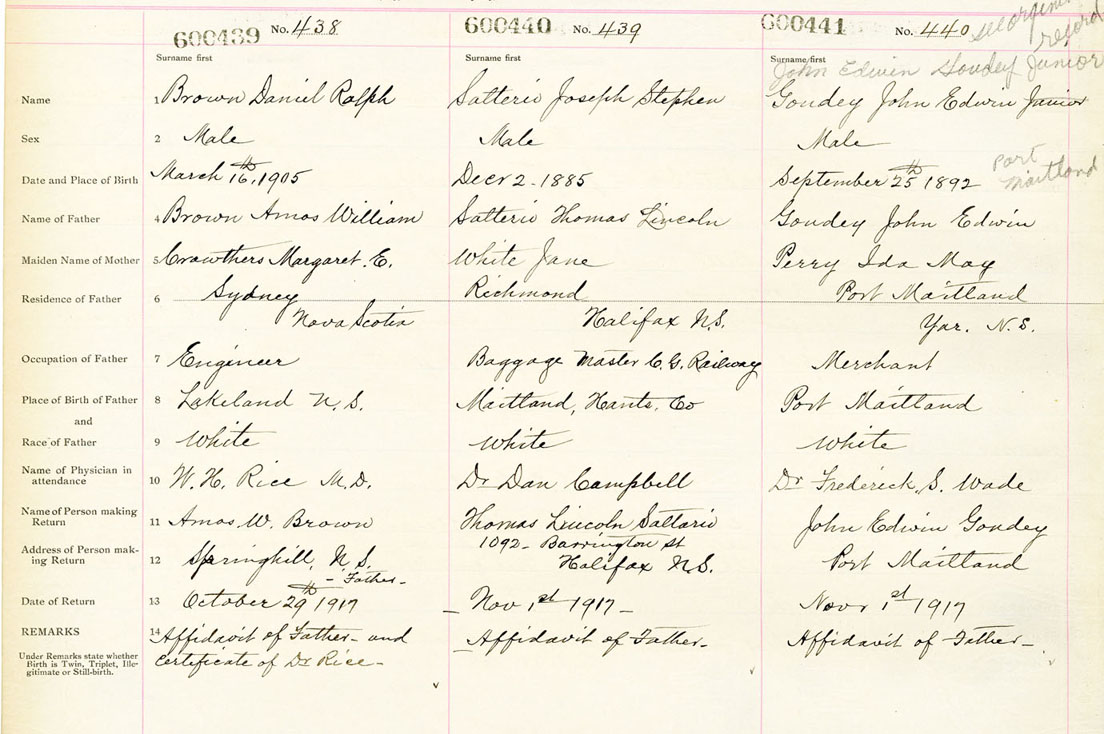 600439 No. 438 600440 No. 439 600441 No. 440 record
Surname first Surname first Surname first
John Edwin Goudey Junior
Name 1 Brown Daniel Ralph Satterio Joseph Stephen Goudey John Edwin Junior
Sex 2 Male Male Male
Date and Place of Birth March 16th, 1905 Decr 2 - 1885 September 25th 1892 Port Maitland
Name of Father 4 Brown Amos William Satterio Thomas Lincoln Goudey John Edwin
Maiden Name of Mother 5 Crowthers Margaret. E. White Jane Perry Ida May
Residence of Father 6 Sydney Richmond Port Maitland
Nova Scotia Halifax N.S. Yar. N.S.
Occupation of Father 7 Engineer Baggage Master C. G. Railway Merchant
Place of Birth of Father 8 Lakeland N.S. Maitland, Hants. Co Port Maitland
and
Race of Father 9 White White White
Name of Physician in
attendance 10 W. H. Rice M.D. Dr Dan Campbell Dr Frederick. S. Wade
Name of Person making
Return 11 Amos. W. Brown Thomas Lincoln Saltario John Edwin Goudey
Address of Person mak-
ing Return 12 Springhill, N.S. 1092 - Barrington St Port Maitland
- Father - Halifax N.S.
Date of Return 13 October 29th 1917 - Nov 1st 1917 - Novr 1st 1917
REMARKS 14 Affidavit of Father - and - Affidavit of Father - Affidavit of Father -
Certificate of Dr Rice -
Under Remarks state whether
Birth is Twin, Triplet, Ille-
gitimate or Still-birth.